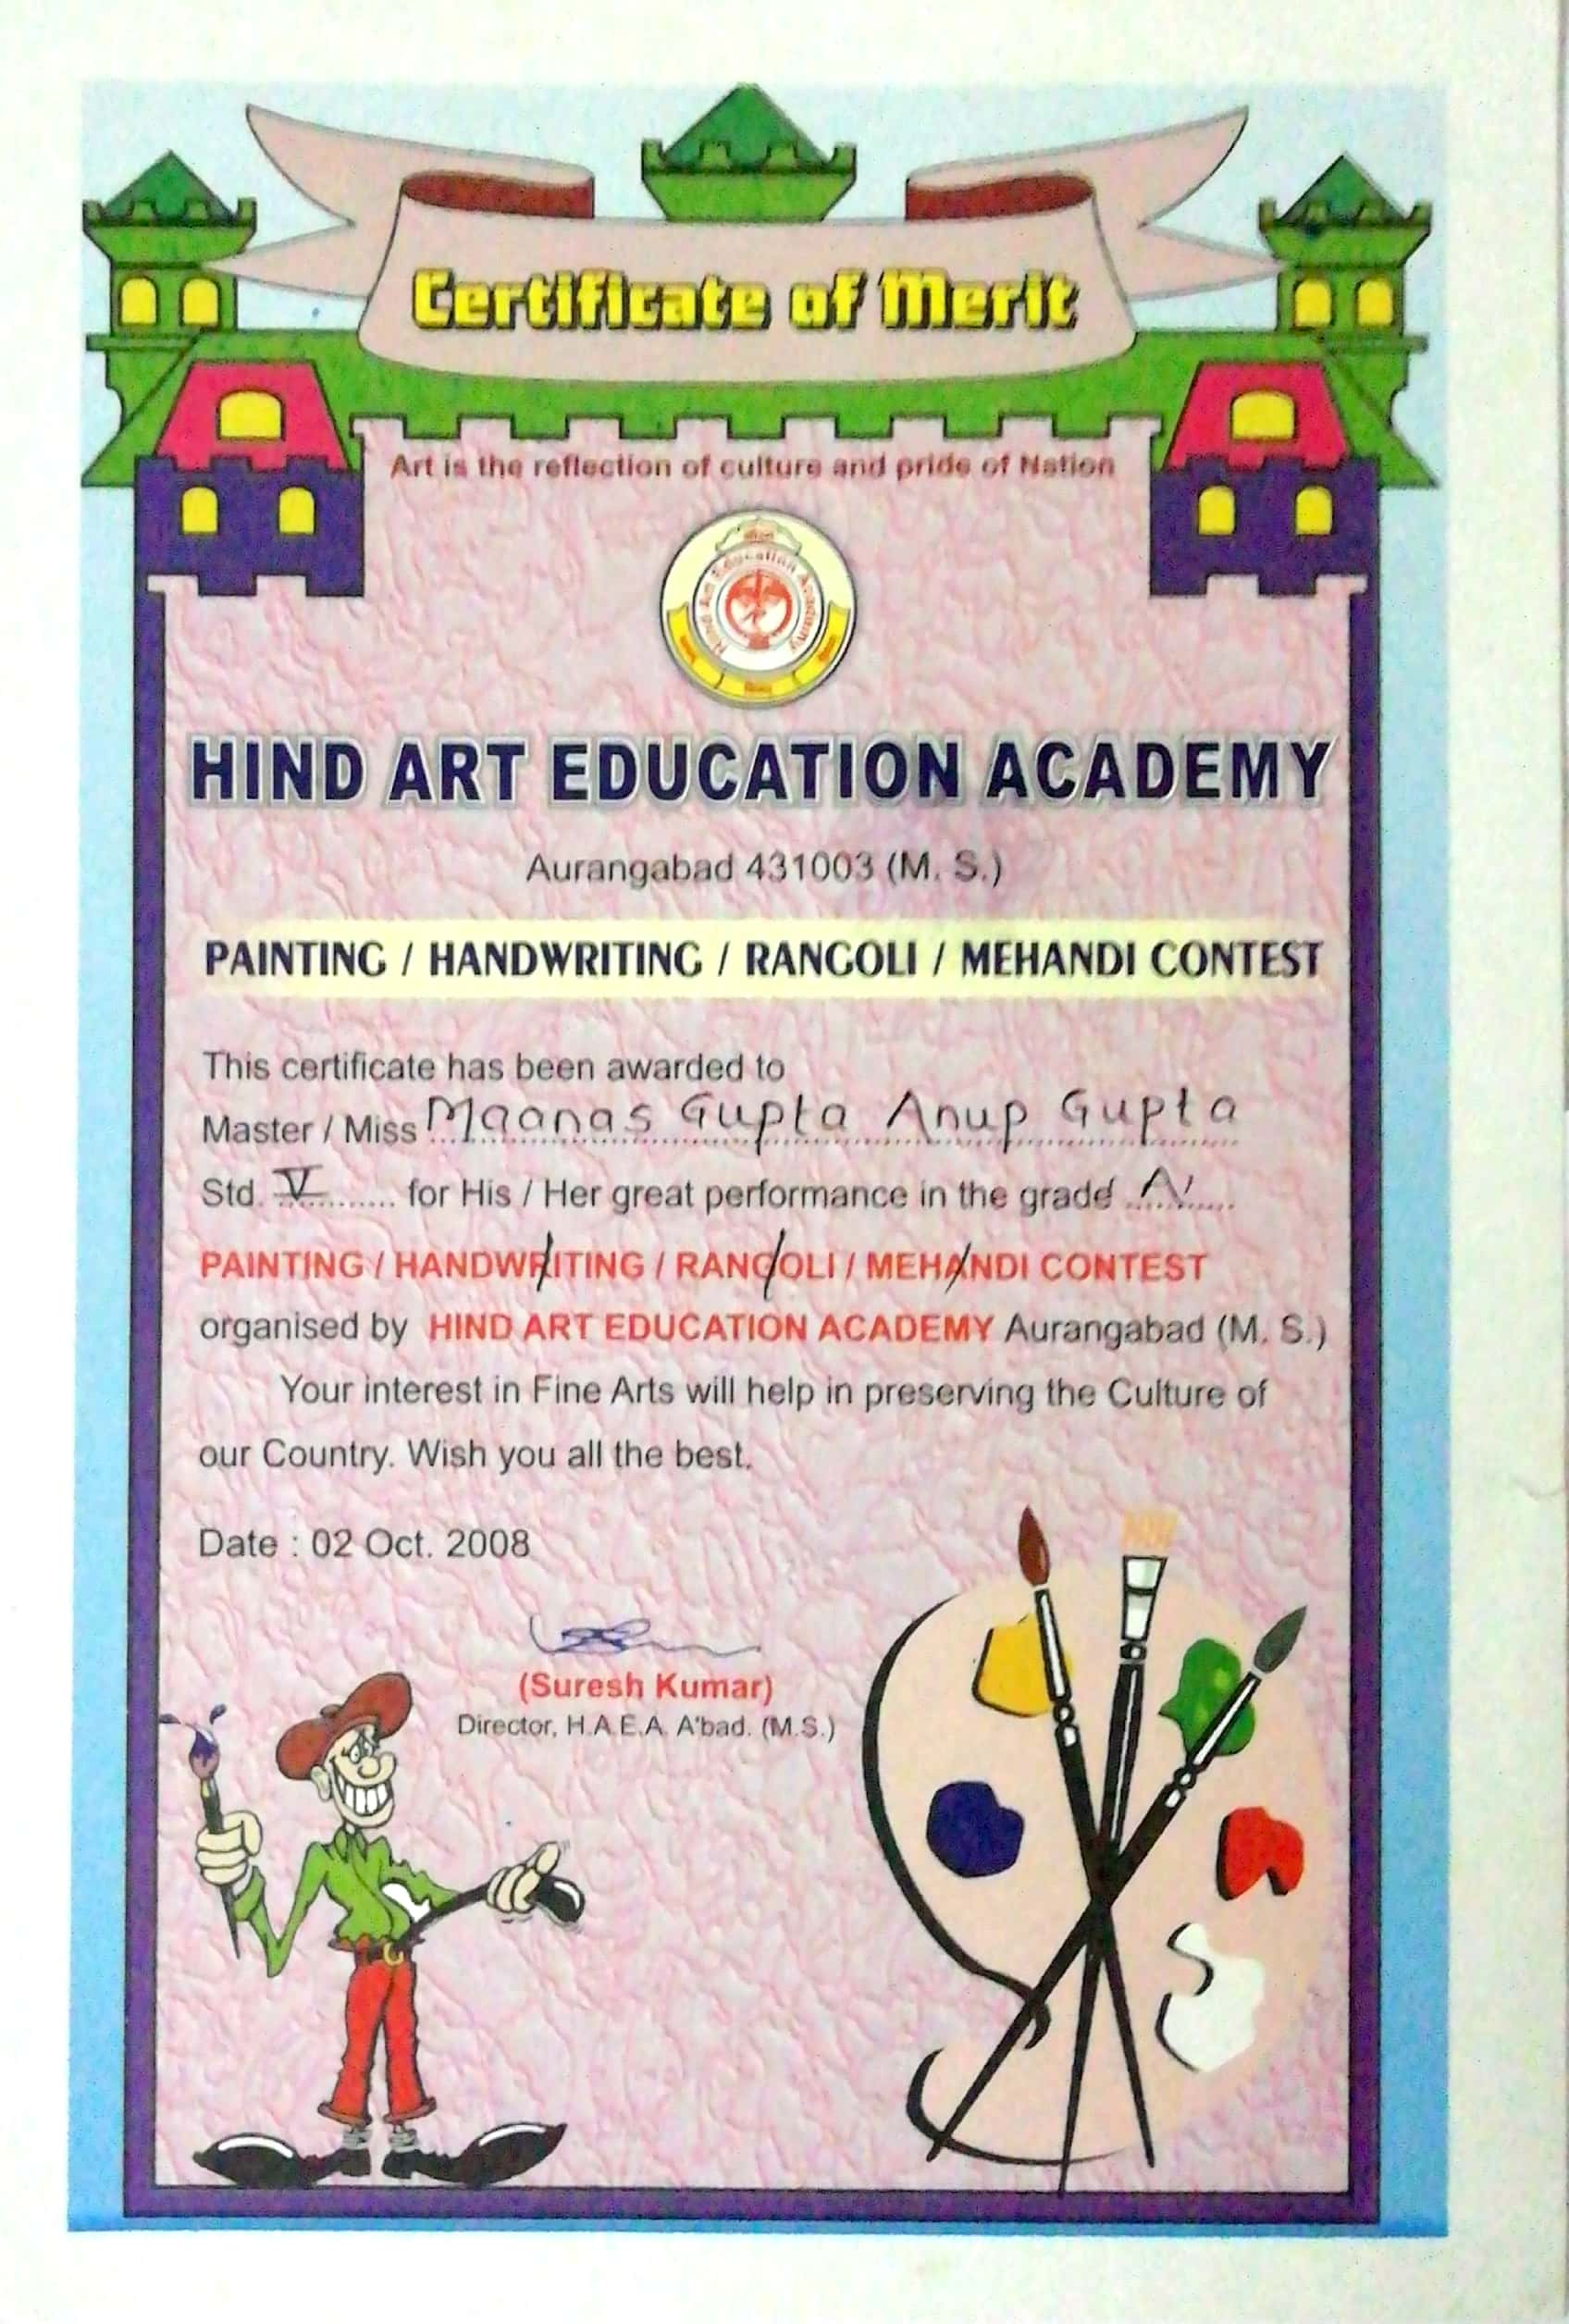 Certificate of Merit
Art is the reflection of culture and pride of Nation
Hind Art Education Academy
HIND ART EDUCATION ACADEMY
Aurangabad 431003 (M. S.)
PAINTING / HANDWRITING / RANGOLI / MEHANDI CONTEST
This certificate has been awarded to
Master / Miss Maanas Gupta Anup Gupta
Std. V for His / Her great performance in the grade A'
PAINTING / HANDWRITING / RANGOLI / MEHANDI CONTEST
organised by HIND ART EDUCATION ACADEMY Aurangabad (M. S.)
Your interest in Fine Arts will help in preserving the Culture of
our Country. Wish you all the best.
Date : 02 Oct. 2008
(Suresh Kumar)
Director, H.A.E.A. A'bad. (M.S.)